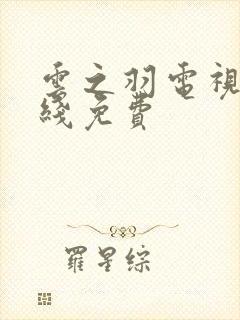 雲之羽電視
綫免費
羅星綜